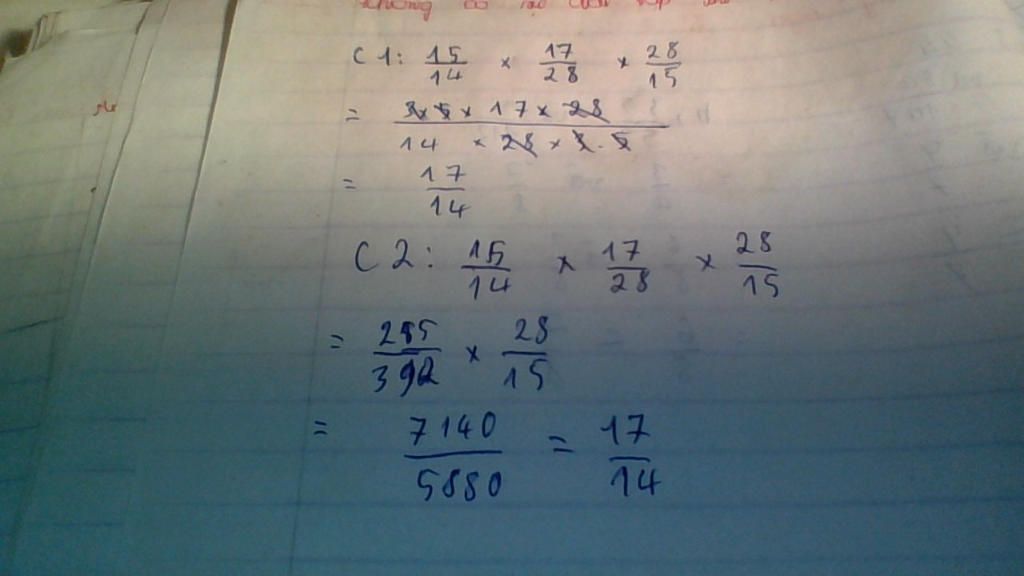 C1: 15/14 × 17/28 × 28/15
= 3 × 5 × 17 × 28 / 14 × 28 × 3 . 5
= 17/14
C2: 15/14 × 17/28 × 28/15
= 255/392 × 28/15
= 7140/5880 = 17/14